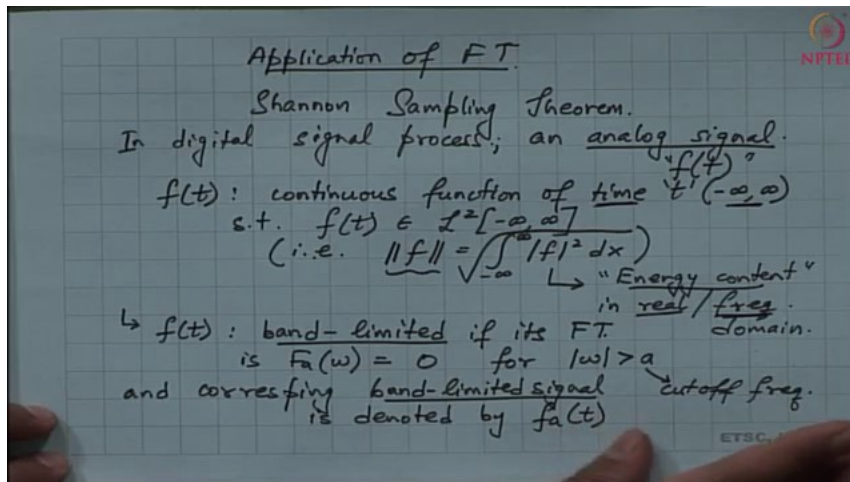 Application of FT.
NPTEL
Shannon Sampling Theorem.
In digital signal process; an analog signal.
"f(t)"
f(t) : continuous function of time 't' (-∞, ∞)
s.t. f(t) ∈ L²[-∞, ∞]
(i.e. ||f|| = √∫_{-∞}^{∞} |f|² dx)
↳ "Energy content"
in real / freq.
domain.
↳ f(t) : band-limited if its FT.
is Fa(ω) = 0 for |ω| > a
cutoff freq.
and corresping band-limited signal
is denoted by fa(t)